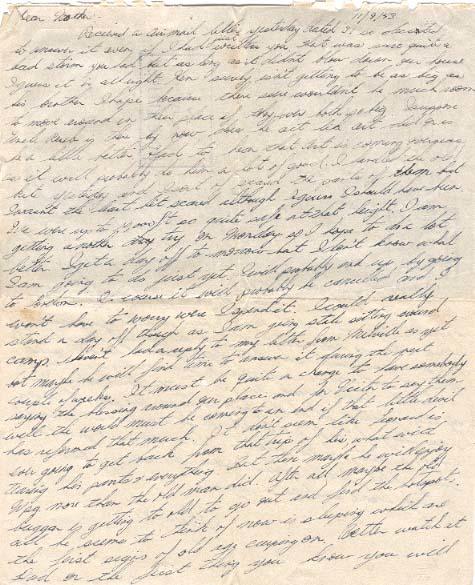 Dear Mother. 11/9/43
Received a airmail letter yesterday dated 31 so decided
to answer it even if I had written you. That was sure quite a
bad storm you had but as long as it didn't blow down our house
I guess it is all right. I sure isn't getting to be as big as
his brother I hope because there sure wouldn't be much room
to move around in their place if they were both so big. I suppose
is there by now, does he act like or is
he a little better. Glad to hear that that is coming overseas
as it will probably do him a lot of good. I
but yesterday and of the of them but
I wasn't the least bit scared although I guess I should have been
I'm so quite safe at that height. I am
getting another try on Monday so I hope to do a lot
better. I get a day off to-morrow but I don't know what
I am going to do just yet. Will probably end up by going
to . Of course it will probably be cancelled and I
won't have to worry were I spend it. I could really
stand a day off though as I am going stale sitting around
camp. Haven't had a reply to my letter from Melville as yet
but maybe he will find time to answer it during the next
couple of weeks. It must be quite a change to have somebody
saying the blessing around our place and for Keith to say them
well the world must be coming to an end if that little devil
has reformed that much. It don't seem like Leonard is
ever going to get back from that trip of his what with
losing his pants & everything but then maybe he will enjoy
Wpg more than the old man did. After all maybe the old
beggar is getting to old to go out and find the hotspots.
all he seems to think of now is sleeping which are
the first signs of old age creeping on. Better watch it
Dad or the first thing you know you will